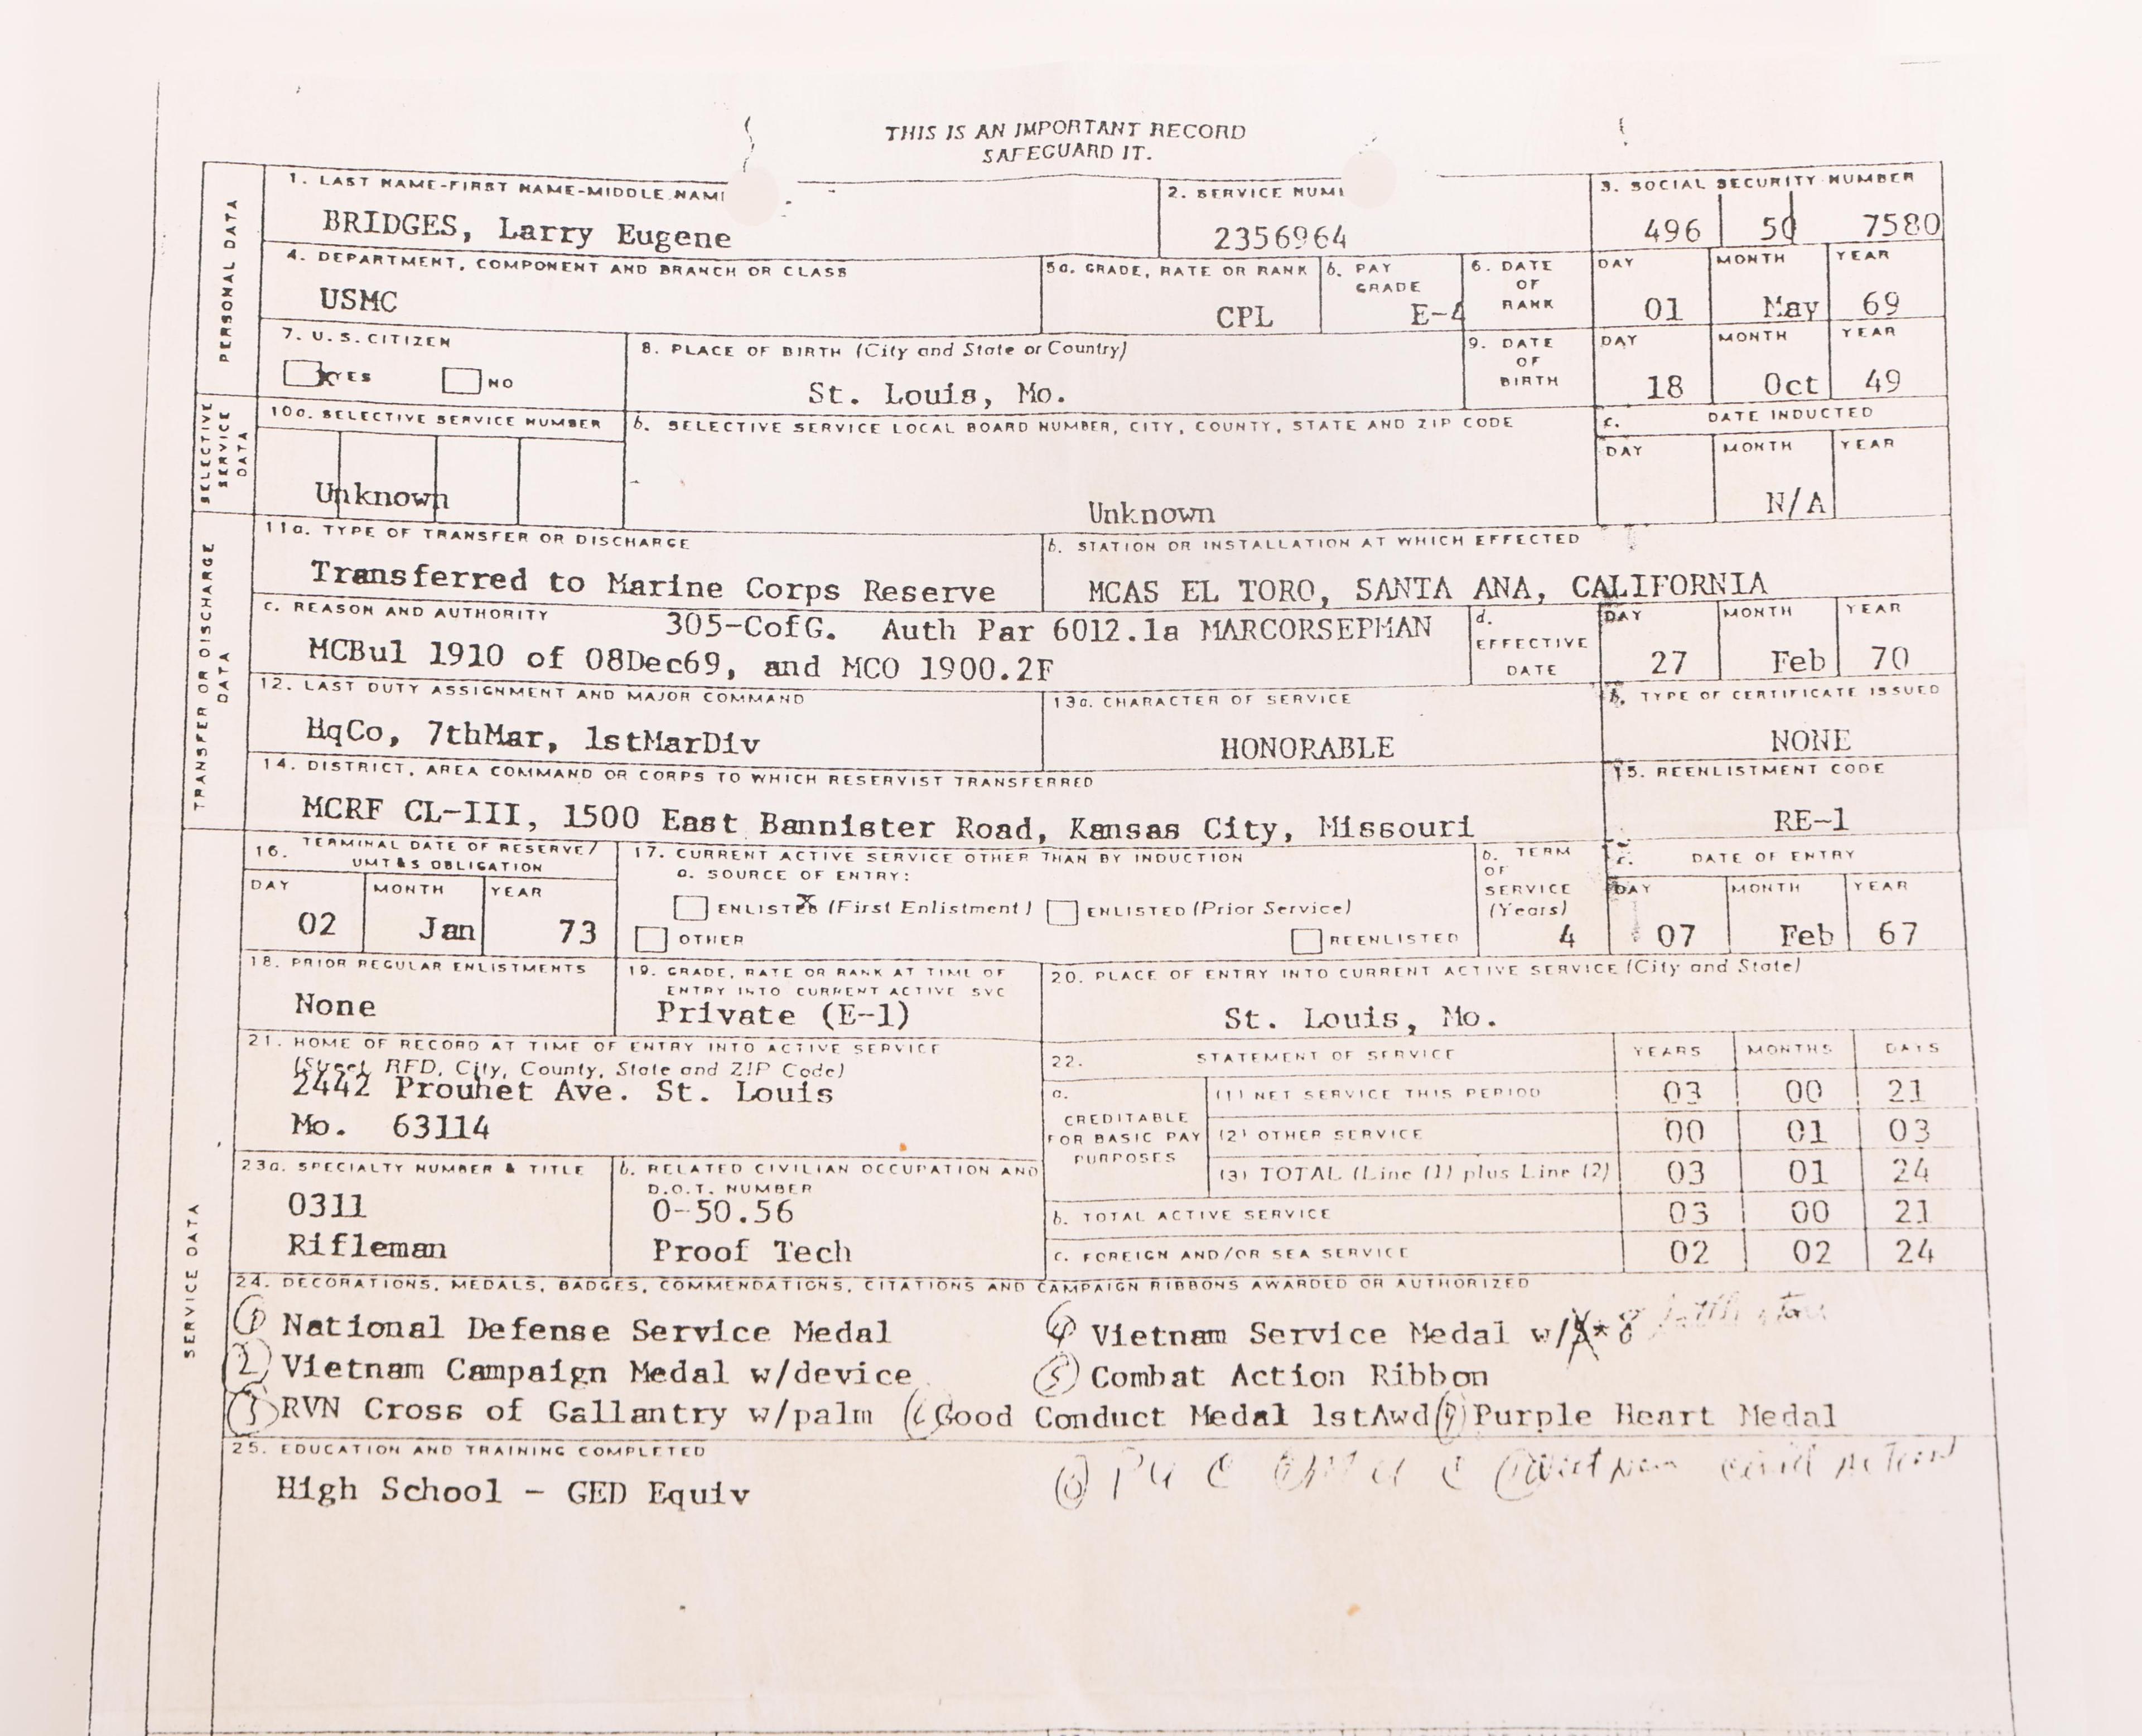 THIS IS AN IMPORTANT RECORD
SAFEGUARD IT.
PERSONAL DATA
1. LAST NAME-FIRST NAME-MIDDLE NAM
BRIDGES, Larry Eugene
2. SERVICE NUM
2356964
3. SOCIAL SECURITY NUMBER
496 50 7580
4. DEPARTMENT, COMPONENT AND BRANCH OR CLASS
USMC
5a. GRADE, RATE OR RANK
CPL
b. PAY GRADE
E-4
6. DATE OF RANK
DAY MONTH YEAR
01 May 69
7. U.S. CITIZEN
YES NO
8. PLACE OF BIRTH (City and State or Country)
St. Louis, Mo.
9. DATE OF BIRTH
DAY MONTH YEAR
18 Oct 49
SELECTIVE SERVICE DATA
10a. SELECTIVE SERVICE NUMBER
Unknown
b. SELECTIVE SERVICE LOCAL BOARD NUMBER, CITY, COUNTY, STATE AND ZIP CODE
Unknown
c. DATE INDUCTED
DAY MONTH YEAR
N/A
TRANSFER OR DISCHARGE DATA
11a. TYPE OF TRANSFER OR DISCHARGE
Transferred to Marine Corps Reserve
b. STATION OR INSTALLATION AT WHICH EFFECTED
MCAS EL TORO, SANTA ANA, CALIFORNIA
c. REASON AND AUTHORITY
305-CofG. Auth Par 6012.1a MARCORSEPMAN
MCBul 1910 of 08Dec69, and MCO 1900.2F
d. EFFECTIVE DATE
DAY MONTH YEAR
27 Feb 70
12. LAST DUTY ASSIGNMENT AND MAJOR COMMAND
HqCo, 7thMar, 1stMarDiv
13a. CHARACTER OF SERVICE
HONORABLE
b. TYPE OF CERTIFICATE ISSUED
NONE
14. DISTRICT, AREA COMMAND OR CORPS TO WHICH RESERVIST TRANSFERRED
MCRF CL-III, 1500 East Bannister Road, Kansas City, Missouri
15. REENLISTMENT CODE
RE-1
SERVICE DATA
16. TERMINAL DATE OF RESERVE/
UMT&S OBLIGATION
DAY MONTH YEAR
02 Jan 73
17. CURRENT ACTIVE SERVICE OTHER THAN BY INDUCTION
a. SOURCE OF ENTRY:
ENLISTED (First Enlistment) ENLISTED (Prior Service)
OTHER REENLISTED
b. TERM OF SERVICE (Years)
4
c. DATE OF ENTRY
DAY MONTH YEAR
07 Feb 67
18. PRIOR REGULAR ENLISTMENTS
None
19. GRADE, RATE OR RANK AT TIME OF
ENTRY INTO CURRENT ACTIVE SVC
Private (E-1)
20. PLACE OF ENTRY INTO CURRENT ACTIVE SERVICE (City and State)
St. Louis, Mo.
21. HOME OF RECORD AT TIME OF ENTRY INTO ACTIVE SERVICE
(Street, RFD, City, County, State and ZIP Code)
2442 Prouhet Ave. St. Louis
Mo. 63114
22. STATEMENT OF SERVICE YEARS MONTHS DAYS
a. CREDITABLE FOR BASIC PAY PURPOSES
(1) NET SERVICE THIS PERIOD 03 00 21
(2) OTHER SERVICE 00 01 03
(3) TOTAL (Line (1) plus Line (2) 03 01 24
b. TOTAL ACTIVE SERVICE 03 00 21
c. FOREIGN AND/OR SEA SERVICE 02 02 24
23a. SPECIALTY NUMBER & TITLE
0311
Rifleman
b. RELATED CIVILIAN OCCUPATION AND
D.O.T. NUMBER
0-50.56
Proof Tech
24. DECORATIONS, MEDALS, BADGES, COMMENDATIONS, CITATIONS AND CAMPAIGN RIBBONS AWARDED OR AUTHORIZED
1 National Defense Service Medal 4 Vietnam Service Medal w/ * 8
2 Vietnam Campaign Medal w/device 5 Combat Action Ribbon
3 RVN Cross of Gallantry w/palm 6 Good Conduct Medal 1stAwd 7 Purple Heart Medal
25. EDUCATION AND TRAINING COMPLETED
High School - GED Equiv
8 PUC